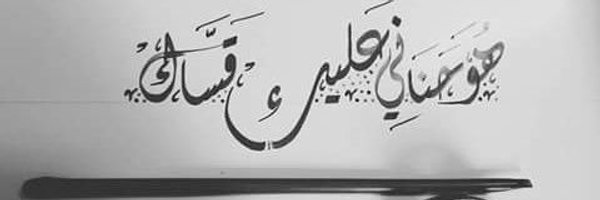 هُوَ حَنَاني عَليك قَسَّاك